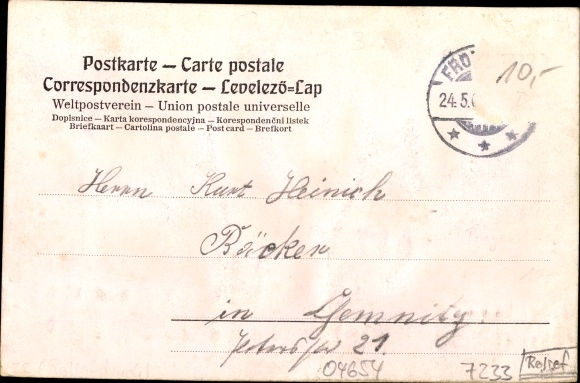 Postkarte – Carte postale
Correspondenzkarte – Levelező=Lap
Weltpostverein – Union postale universelle
Dopisnice – Karta korespondencyjna – Korespondenční listek
Briefkaart – Cartolina postale – Post card – Brefkort
FRO
24.5.
10,-
Herrn Kurt Heinich
Bäcker
in Gemnitz
21.
04654
7233